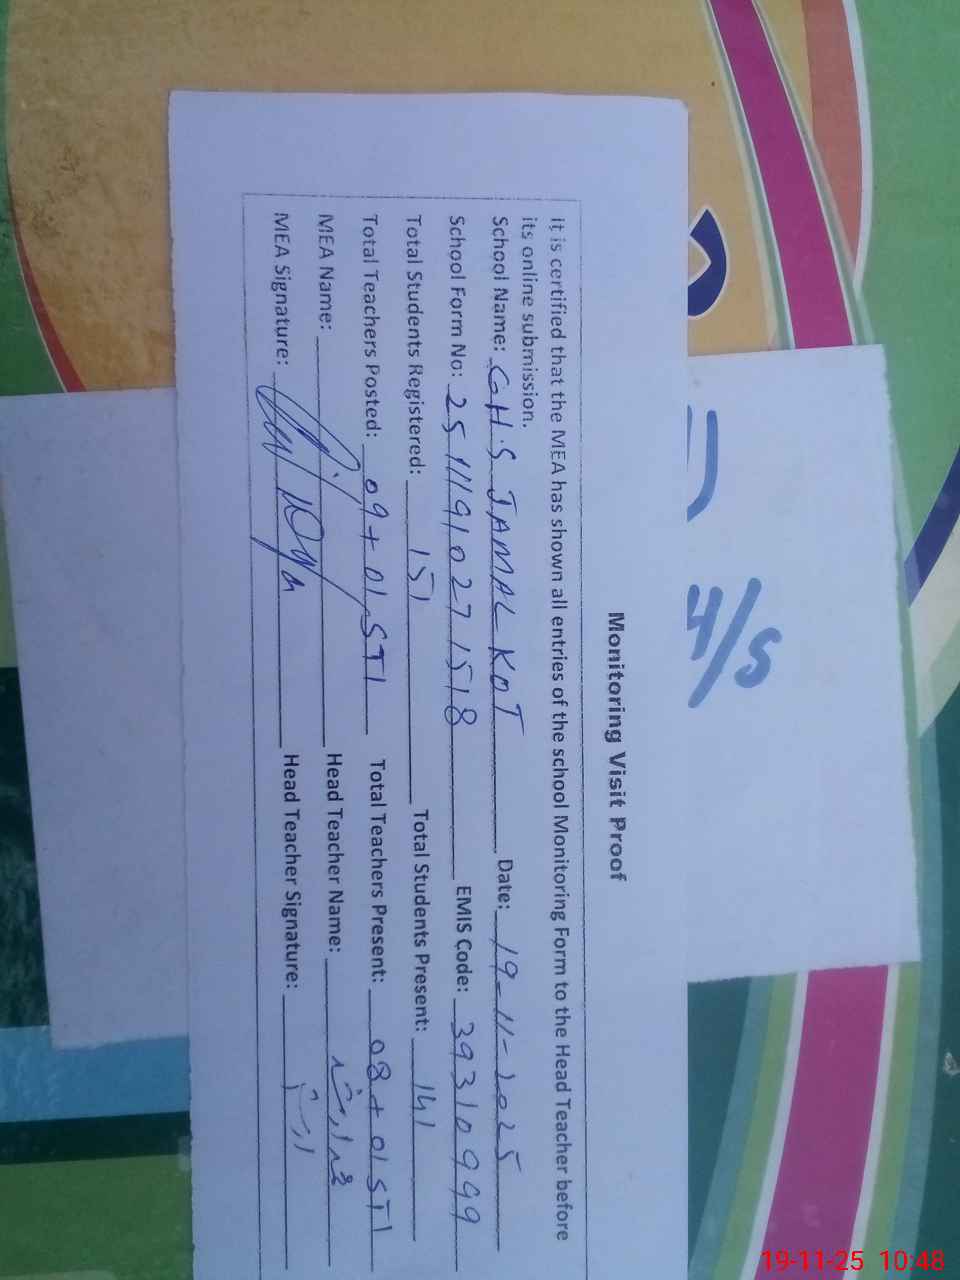 4/5
Monitoring Visit Proof
it is certified that the MEA has shown all entries of the school Monitoring Form to the Head Teacher before
its online submission.
School Name: GHS JAMAL KOT Date: 19-11-2025
School Form No: 25111910271518 EMIS Code: 39310999
Total Students Registered: 151 Total Students Present: 141
Total Teachers Posted: 09+01 STI Total Teachers Present: 08+01 STI
MEA Name: Head Teacher Name:
MEA Signature: Head Teacher Signature:
19-11-25 10:48